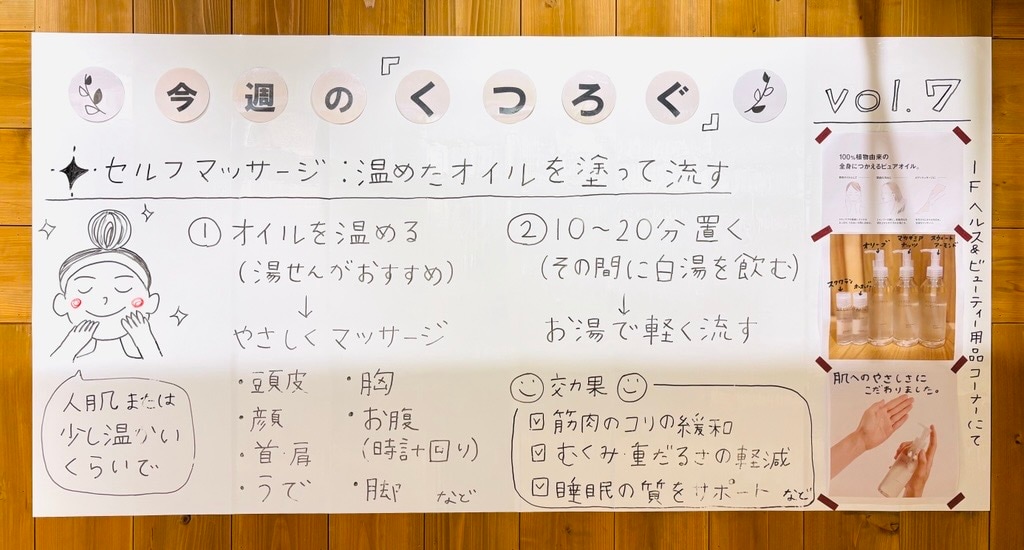 今週の『くつろぐ』
vol.7
セルフマッサージ:温めたオイルを塗って流す
① オイルを温める
(湯せんがおすすめ)
↓
やさしくマッサージ
・頭皮
・顔
・首・肩
・うで
・胸
・お腹
(時計回り)
・脚 など
人肌または
少し温かい
くらいで
② 10〜20分置く
(その間に白湯を飲む)
↓
お湯で軽く流す
効果
☑ 筋肉のコリの緩和
☑ むくみ・重だるさの軽減
☑ 睡眠の質をサポート など
100%植物由来の
全身につかえるピュアオイル。
スクワラン
ホホバ
オリーブ
マカデミアナッツ
スウィートアーモンド
肌へのやさしさに
こだわりました。
1F ヘルス&ビューティー用品コーナーにて